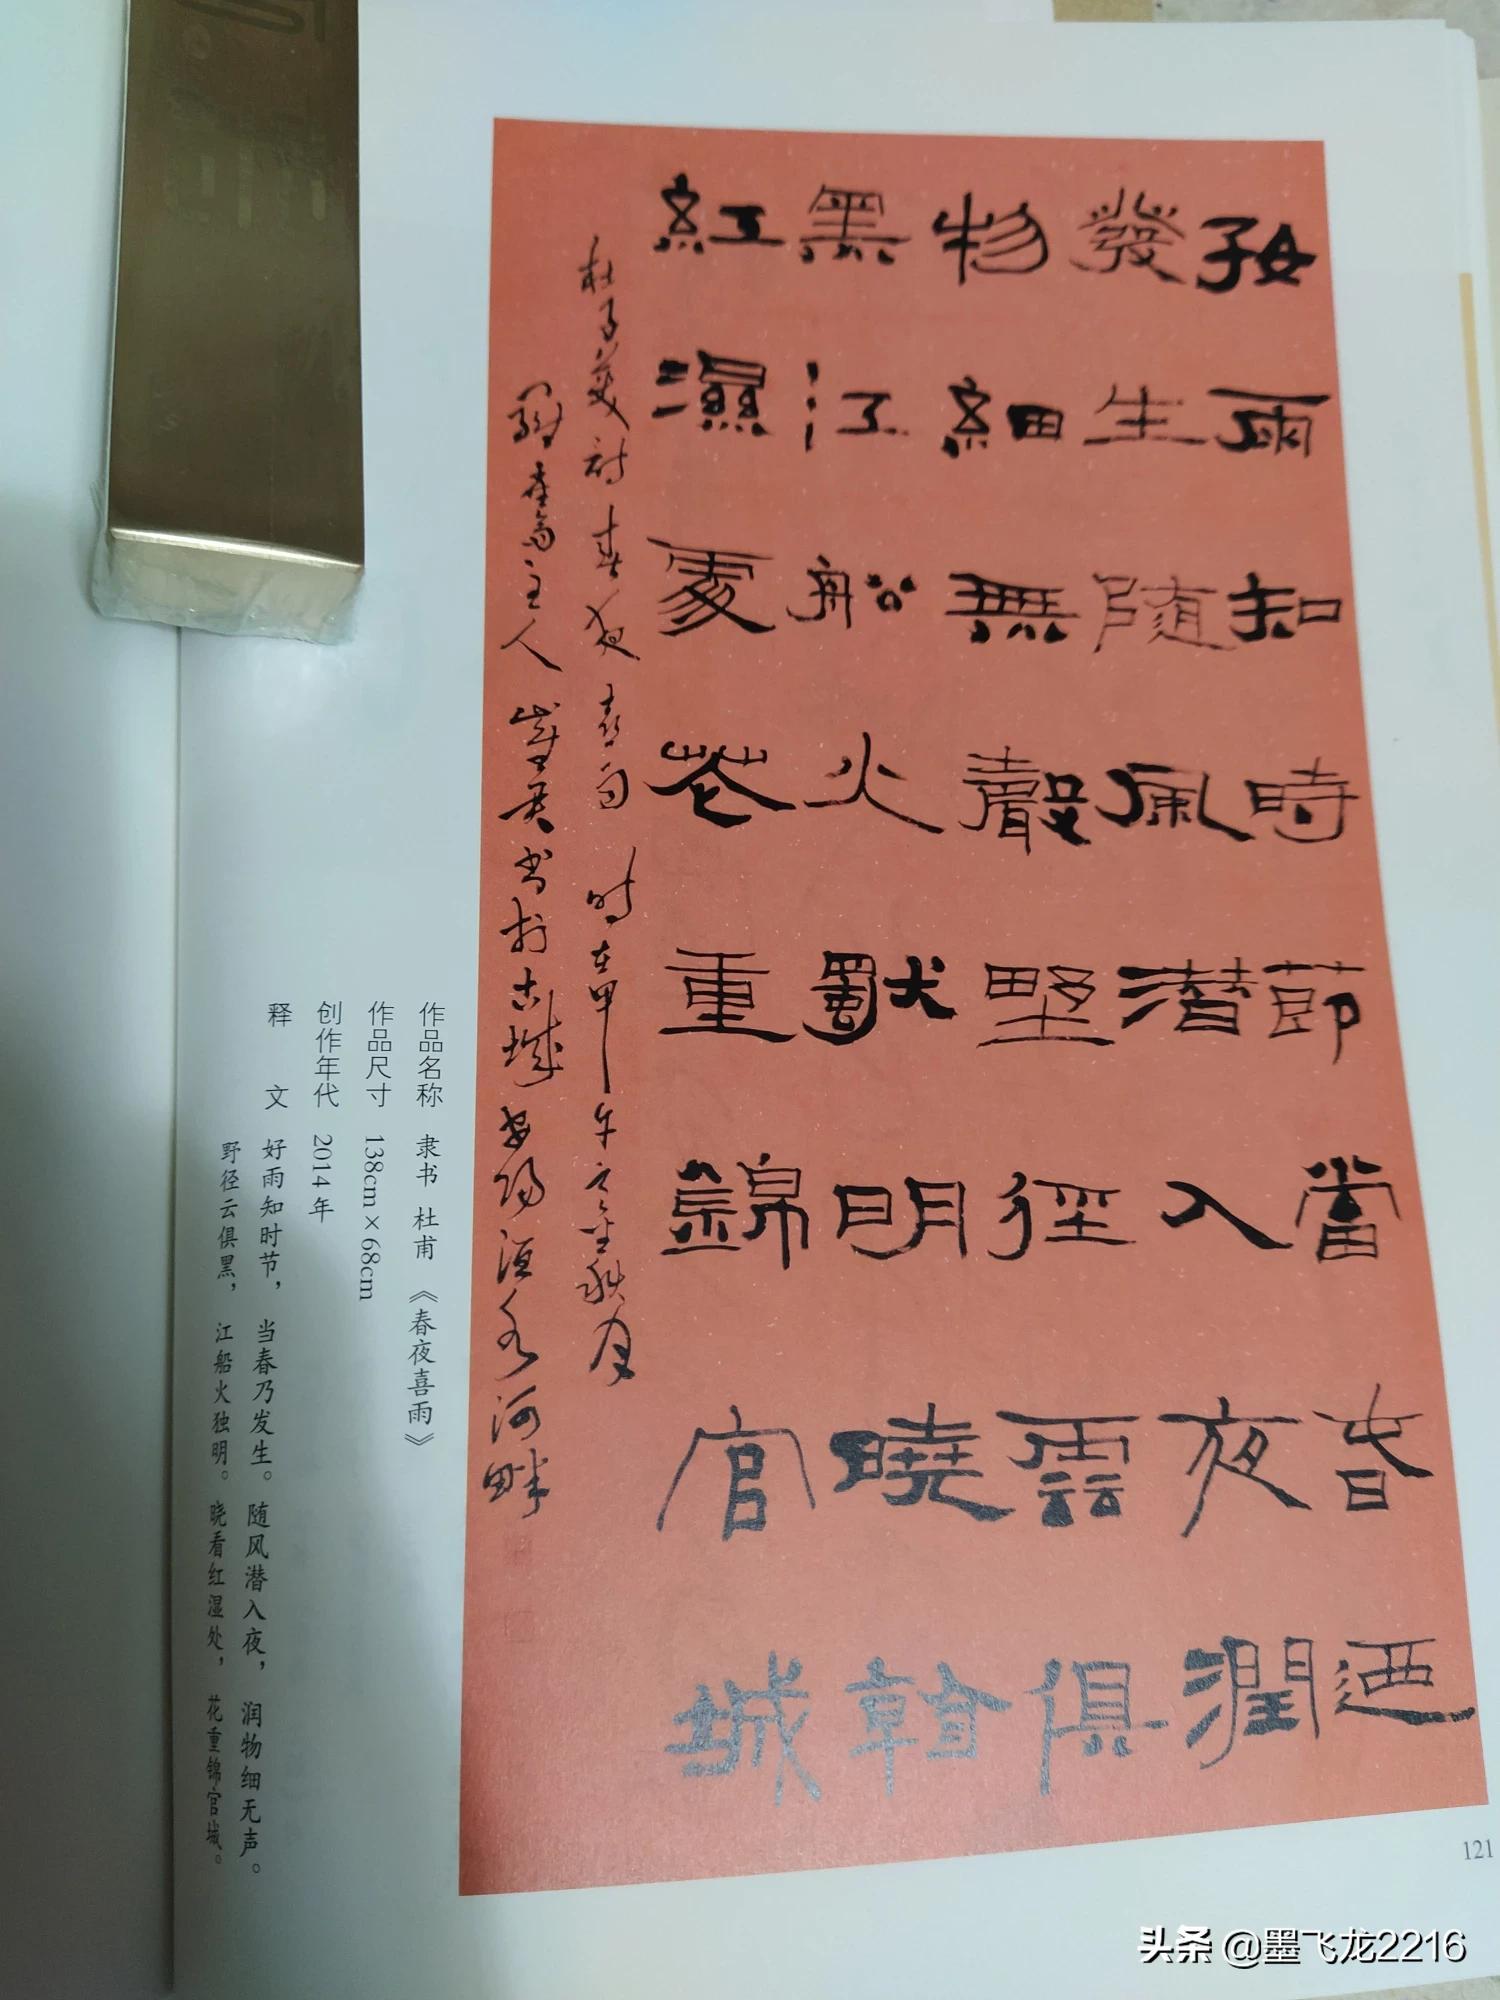 好雨知時節當春迺
發生随風潜入夜潤
物細無聲野径雲俱
黑江船火獨明曉看
紅濕處花重錦官城
杜子美詩春夜喜雨 时在甲午之金秋月
斋主人 书於古城安阳洹水河畔
作品名称 隶书 杜甫《春夜喜雨》
作品尺寸 138cm×68cm
创作年代 2014年
释文 好雨知时节，当春乃发生。随风潜入夜，润物细无声。
野径云俱黑，江船火独明。晓看红湿处，花重锦官城。
121
头条 @墨飞龙2216